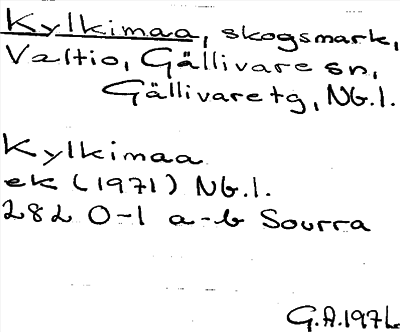 Kylkimaa, skogsmark,
Valtio, Gällivare sn,
Gällivare tg, Nb.l.
Kylkimaa
ek (1971) Nb.l.
282 0-1 a-b Sourra
G.A.1974